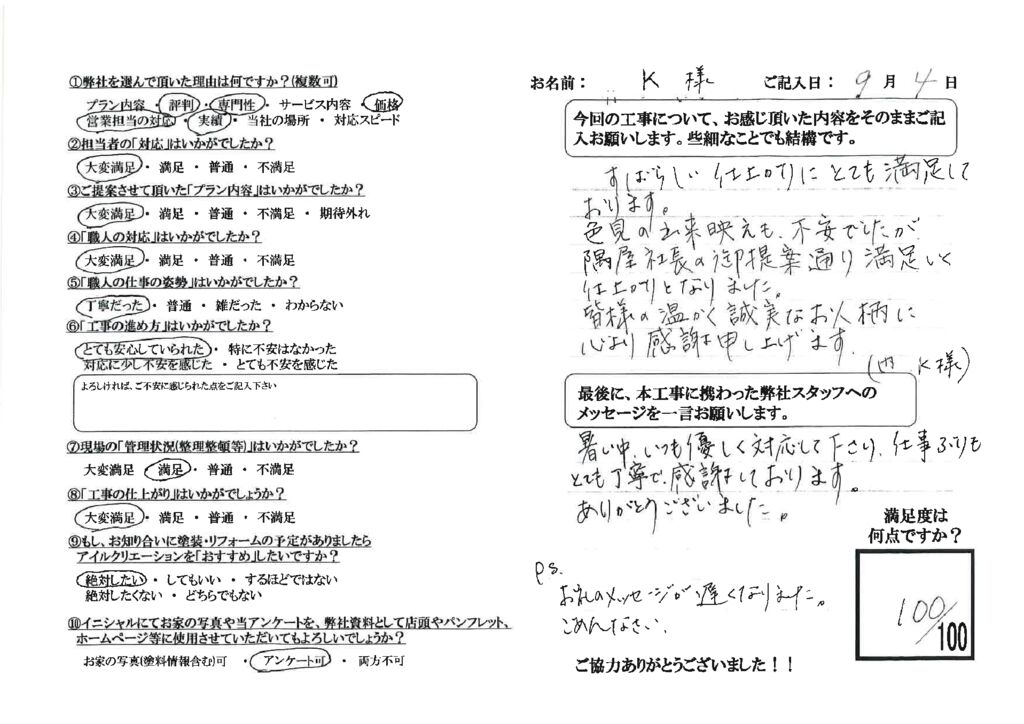 ①弊社を選んで頂いた理由は何ですか？(複数可)
プラン内容 ・ 評判 ・ 専門性 ・ サービス内容 ・ 価格
営業担当の対応 ・ 実績 ・ 当社の場所 ・ 対応スピード
②担当者の「対応」はいかがでしたか？
大変満足 ・ 満足 ・ 普通 ・ 不満足
③ご提案させて頂いた「プラン内容」はいかがでしたか？
大変満足 ・ 満足 ・ 普通 ・ 不満足 ・ 期待外れ
④「職人の対応」はいかがでしたか？
大変満足 ・ 満足 ・ 普通 ・ 不満足
⑤「職人の仕事の姿勢」はいかがでしたか？
丁寧だった ・ 普通 ・ 雑だった ・ わからない
⑥「工事の進め方」はいかがでしたか？
とても安心していられた ・ 特に不安はなかった
対応に少し不安を感じた ・ とても不安を感じた
よろしければ、ご不安に感じられた点をご記入下さい
⑦現場の「管理状況(整理整頓等)」はいかがでしたか？
大変満足 ・ 満足 ・ 普通 ・ 不満足
⑧「工事の仕上がり」はいかがでしょうか？
大変満足 ・ 満足 ・ 普通 ・ 不満足
⑨もし、お知り合いに塗装・リフォームの予定がありましたら
アイルクリエーションを「おすすめ」したいですか？
絶対したい ・ してもいい ・ するほどではない
絶対したくない ・ どちらでもない
⑩イニシャルにてお家の写真や当アンケートを、弊社資料として店頭やパンフレット、
ホームページ等に使用させていただいてもよろしいでしょうか？
お家の写真(塗料情報含む)可 ・ アンケート可 ・ 両方不可
お名前： K 様 ご記入日： 9 月 4 日
今回の工事について、お感じ頂いた内容をそのままご記
入お願いします。些細なことでも結構です。
すばらしい仕上がりにとても満足して
おります。
色見の出来映えも、不安でしたが
隅屋社長の御提案通り満足いく
仕上がりとなりました。
皆様の温かく誠実なお人柄に
心より感謝申し上げます。
K様)
最後に、本工事に携わった弊社スタッフへの
メッセージを一言お願いします。
暑い中、いつも優しく対応して下さり、仕事ぶりも
とても丁寧で、感謝しております。
ありがとうございました。
満足度は
何点ですか？
100/100
P.S.
お礼のメッセージが遅くなりました。
ごめんなさい。
ご協力ありがとうございました！！